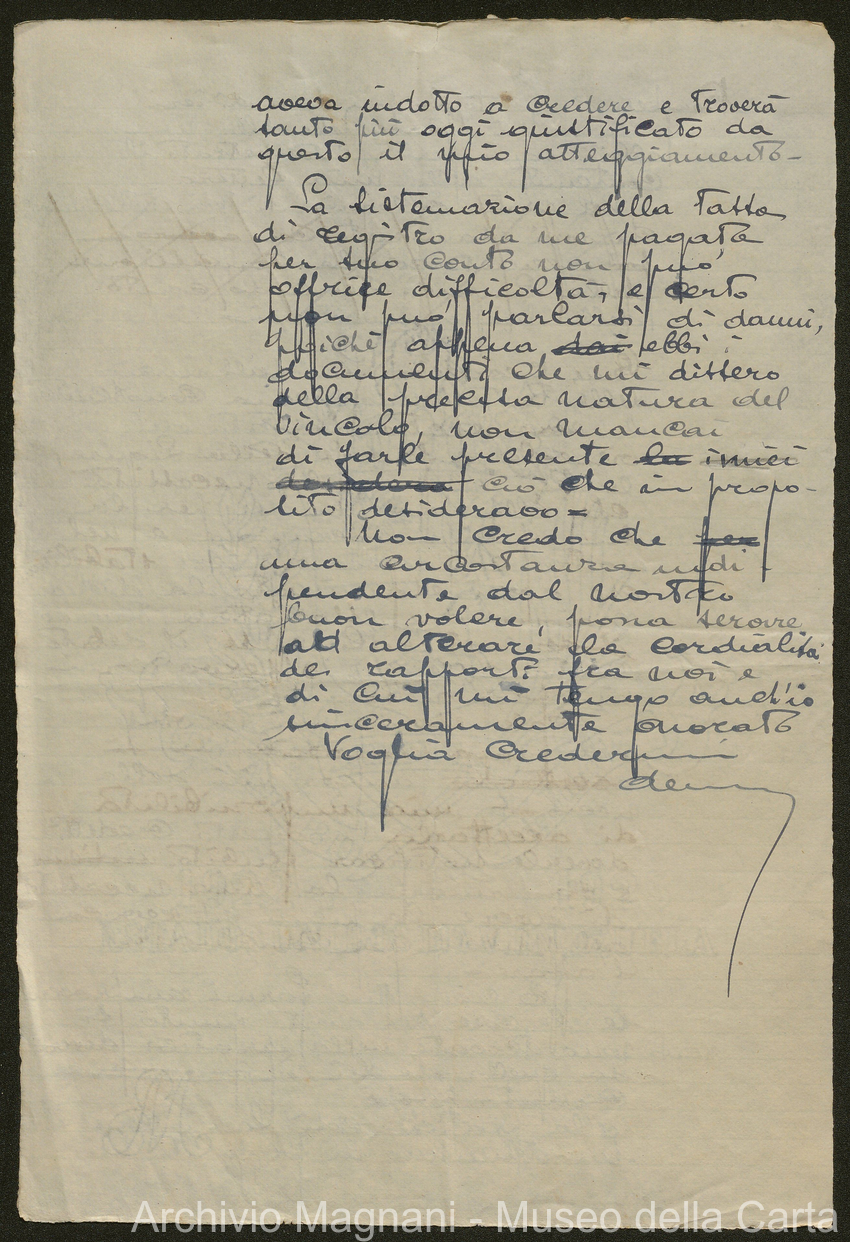 aveva indotto a credere e troverà
tanto più oggi giustificato da
questo il mio atteggiamento -
La sistemazione della tassa
di registro da me pagata
per suo conto non può
offrire difficoltà, e certo
non può parlarsi di danni,
poiché appena dai ebbi i
documenti che mi dissero
della precisa natura del
vincolo, non mancai
di farle presente i miei
ciò che in propo-
sito desideravo =
Non credo che per
una circostanza indi-
pendente dal nostro
buon volere, possa servire
ad alterare la cordialità
dei rapporti fra noi e
di cui mi tengo anch'io
sinceramente onorato
Voglia credermi
Archivio Magnani - Museo della Carta